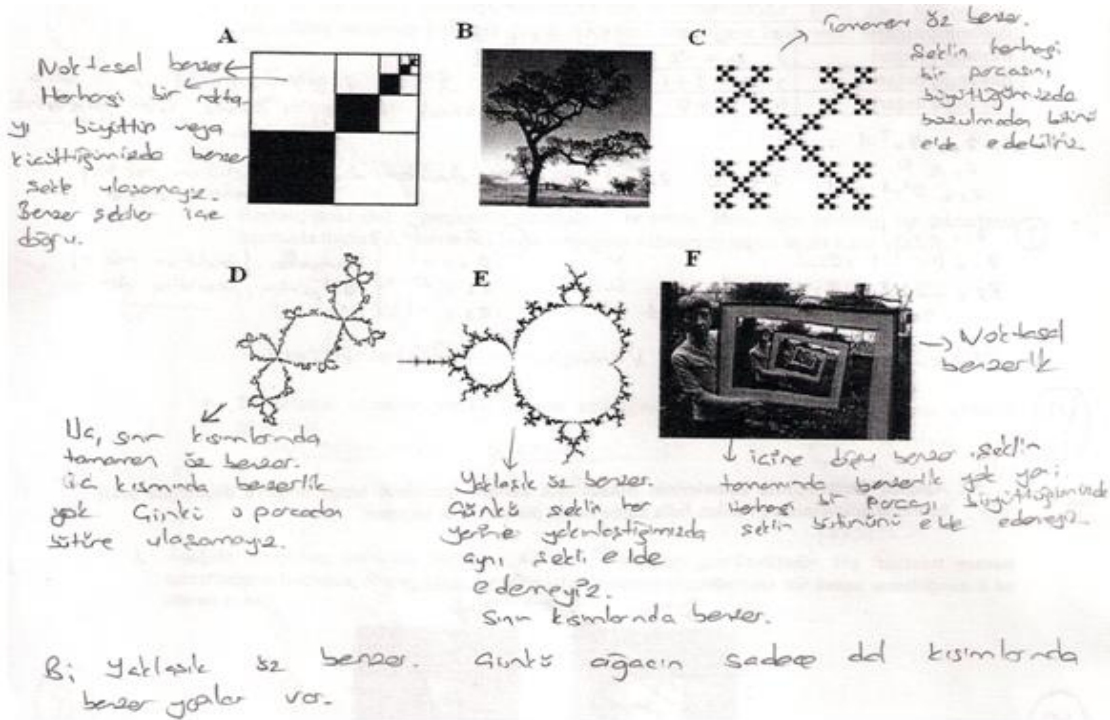 A
Noktasal benzer
Herhangi bir nokta
yı büyüttün veya
küçülttüğümüzde benzer
şekle ulaşamayız.
Benzer şekiller içe
doğru.
B
C
Tamamen öz benzer.
Şeklin herhangi
bir parçasını
büyüttüğümüzde
bozulmadan bütünü
elde edebiliriz.
D
Uç, sınır kısımlarında
tamamen öz benzer.
İç kısmında benzerlik
yok Çünkü o parçadan
bütüne ulaşamayız.
E
Yaklaşık öz benzer.
Çünkü şeklin her
yerine yakınlaştığımızda
aynı şekli elde
edemeyiz.
Sınır kısımlarında benzer.
F
Noktasal
benzerlik
içine doğru benzer, şeklin
tamamında benzerlik yok yani
Herhangi bir parçayı büyüttüğümüzde
şeklin bütününü elde edemeyiz.
B; Yaklaşık öz benzer. Çünkü ağacın sadece dal kısımlarında
benzer yapılar var.